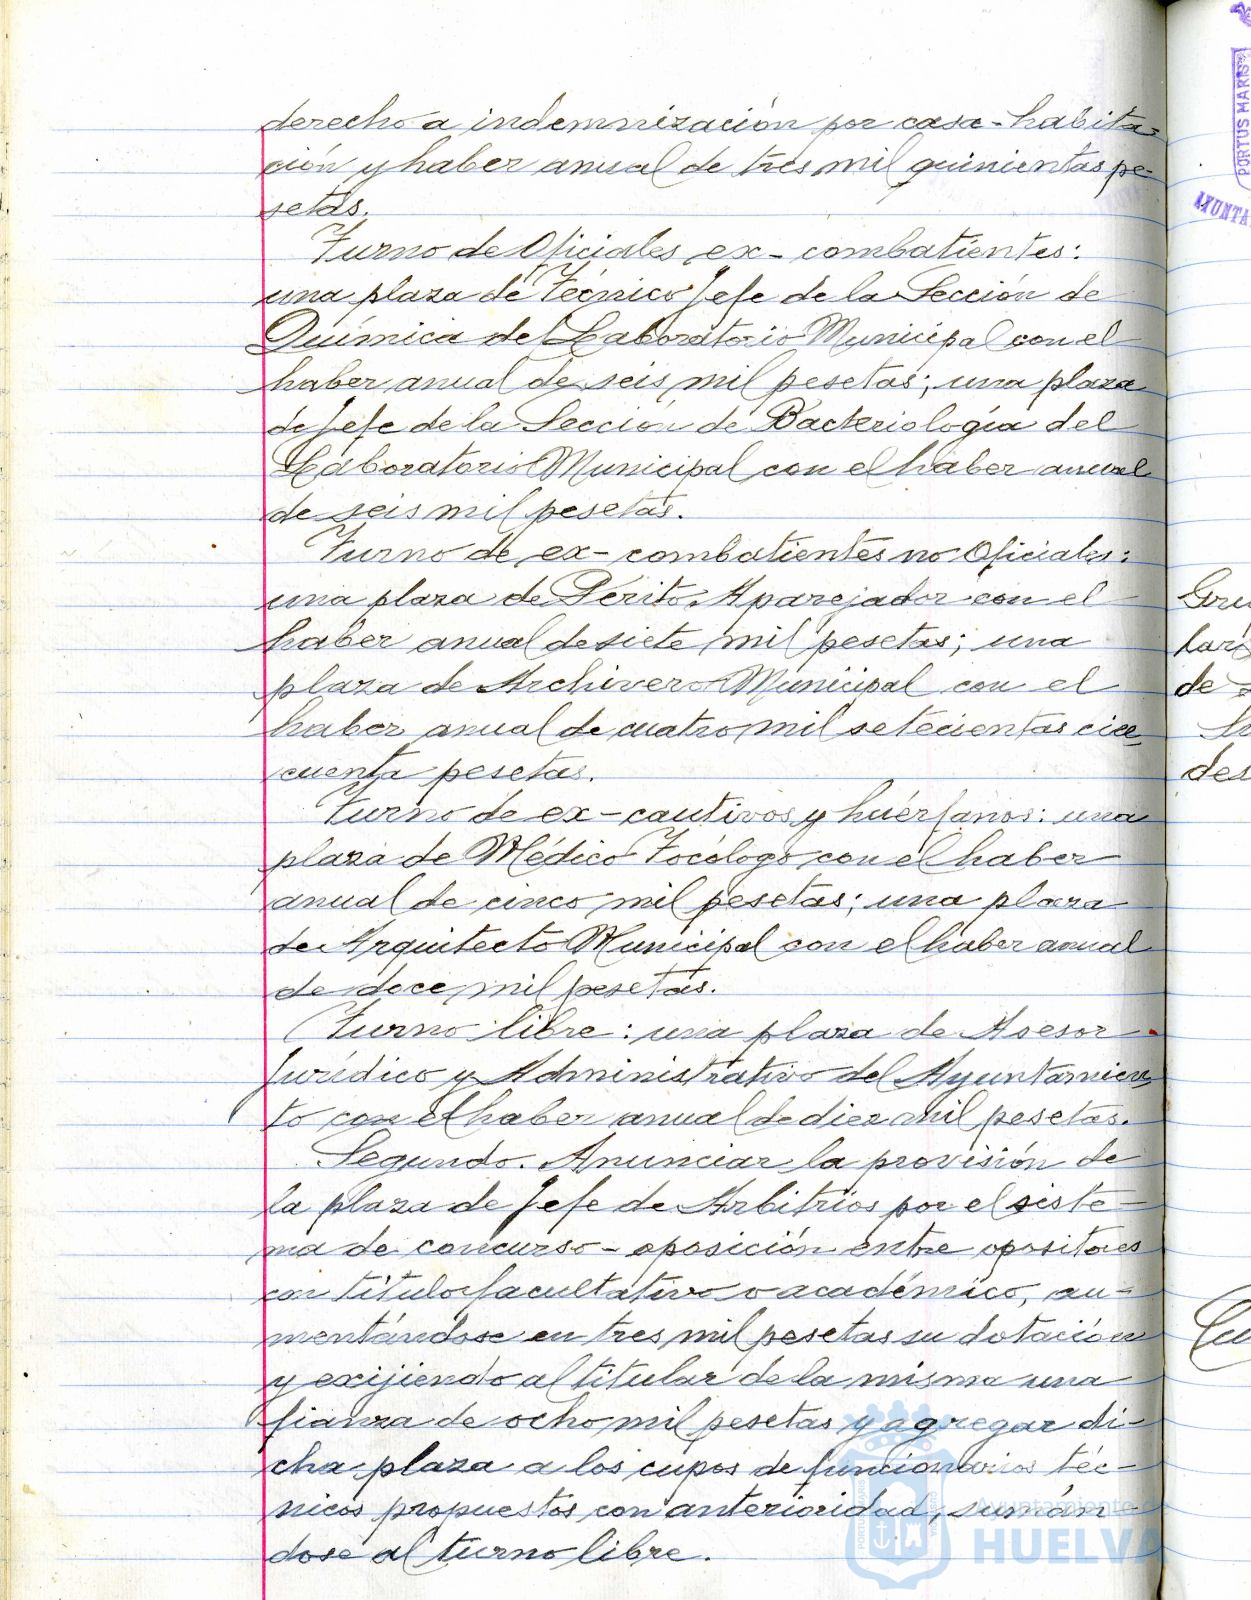 derecho a indemnización por casa-habita-
ción y haber anual de tres mil quinientas pe-
setas.
Turno de Oficiales ex-combatientes:
una plaza de Técnico Jefe de la Sección de
Química del Laboratorio Municipal con el
haber anual de seis mil pesetas; una plaza
de Jefe de la Sección de Bacteriología del
Laboratorio Municipal con el haber anual
de seis mil pesetas.
Turno de ex-combatientes no Oficiales:
una plaza de Perito Aparejador con el
haber anual de siete mil pesetas; una
plaza de Archivero Municipal con el
haber anual de cuatro mil setecientas cin-
cuenta pesetas.
Turno de ex-cautivos y huérfanos: una
plaza de Médico Tocólogo con el haber
anual de cinco mil pesetas; una plaza
de Arquitecto Municipal con el haber anual
de doce mil pesetas.
Turno libre: una plaza de Asesor
Jurídico y Administrativo del Ayuntamien-
to con el haber anual de diez mil pesetas.
Segundo. Anunciar la provisión de
la plaza de Jefe de Arbitrios por el siste-
ma de concurso-oposición entre opositores
con título facultativo o académico, au-
mentándose en tres mil pesetas su dotación
y exijiendo al titular de la misma una
fianza de ocho mil pesetas y agregar di-
cha plaza a los cupos de funcionarios téc-
nicos propuestos con anterioridad, sumán-
dose al turno libre.
PORTUS MARIS
AYUNTA
de
des
Ayuntamiento
HUELVA